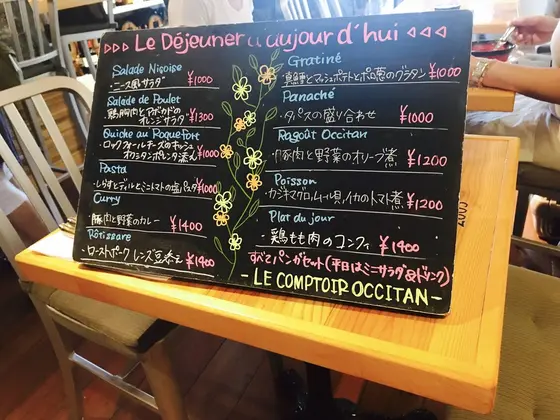 Le Déjeuner d'aujourd'hui
Salade Niçoise
・ニース風サラダ ¥1000
Salade de Poulet
鶏胸肉とアボカドの
オレンジサラダ ¥1300
Quiche au Roquefort
・ロックフォールチーズのキッシュ
オクシタンポレンタ添え ¥1000
Pasta
・しらすとディルとミニトマトの塩パスタ ¥1000
Curry
・豚肉と野菜のカレー ¥1400
Rôtissare
・ローストポーク レンズ豆添え ¥1400
Gratiné
・真鱈とマッシュポテトとポロ葱のグラタン ¥1000
Panaché
・タパスの盛り合わせ ¥1000
Ragoût Occitan
・豚肉と野菜のオリーブ煮 ¥1200
Poisson
・カジキマグロ、ムール貝、イカのトマト煮 ¥1200
Plat du jour
・鶏もも肉のコンフィ ¥1400
すべてパンがセット(平日はミニサラダ&ドリンク)
- LE COMPTOIR OCCITAN -